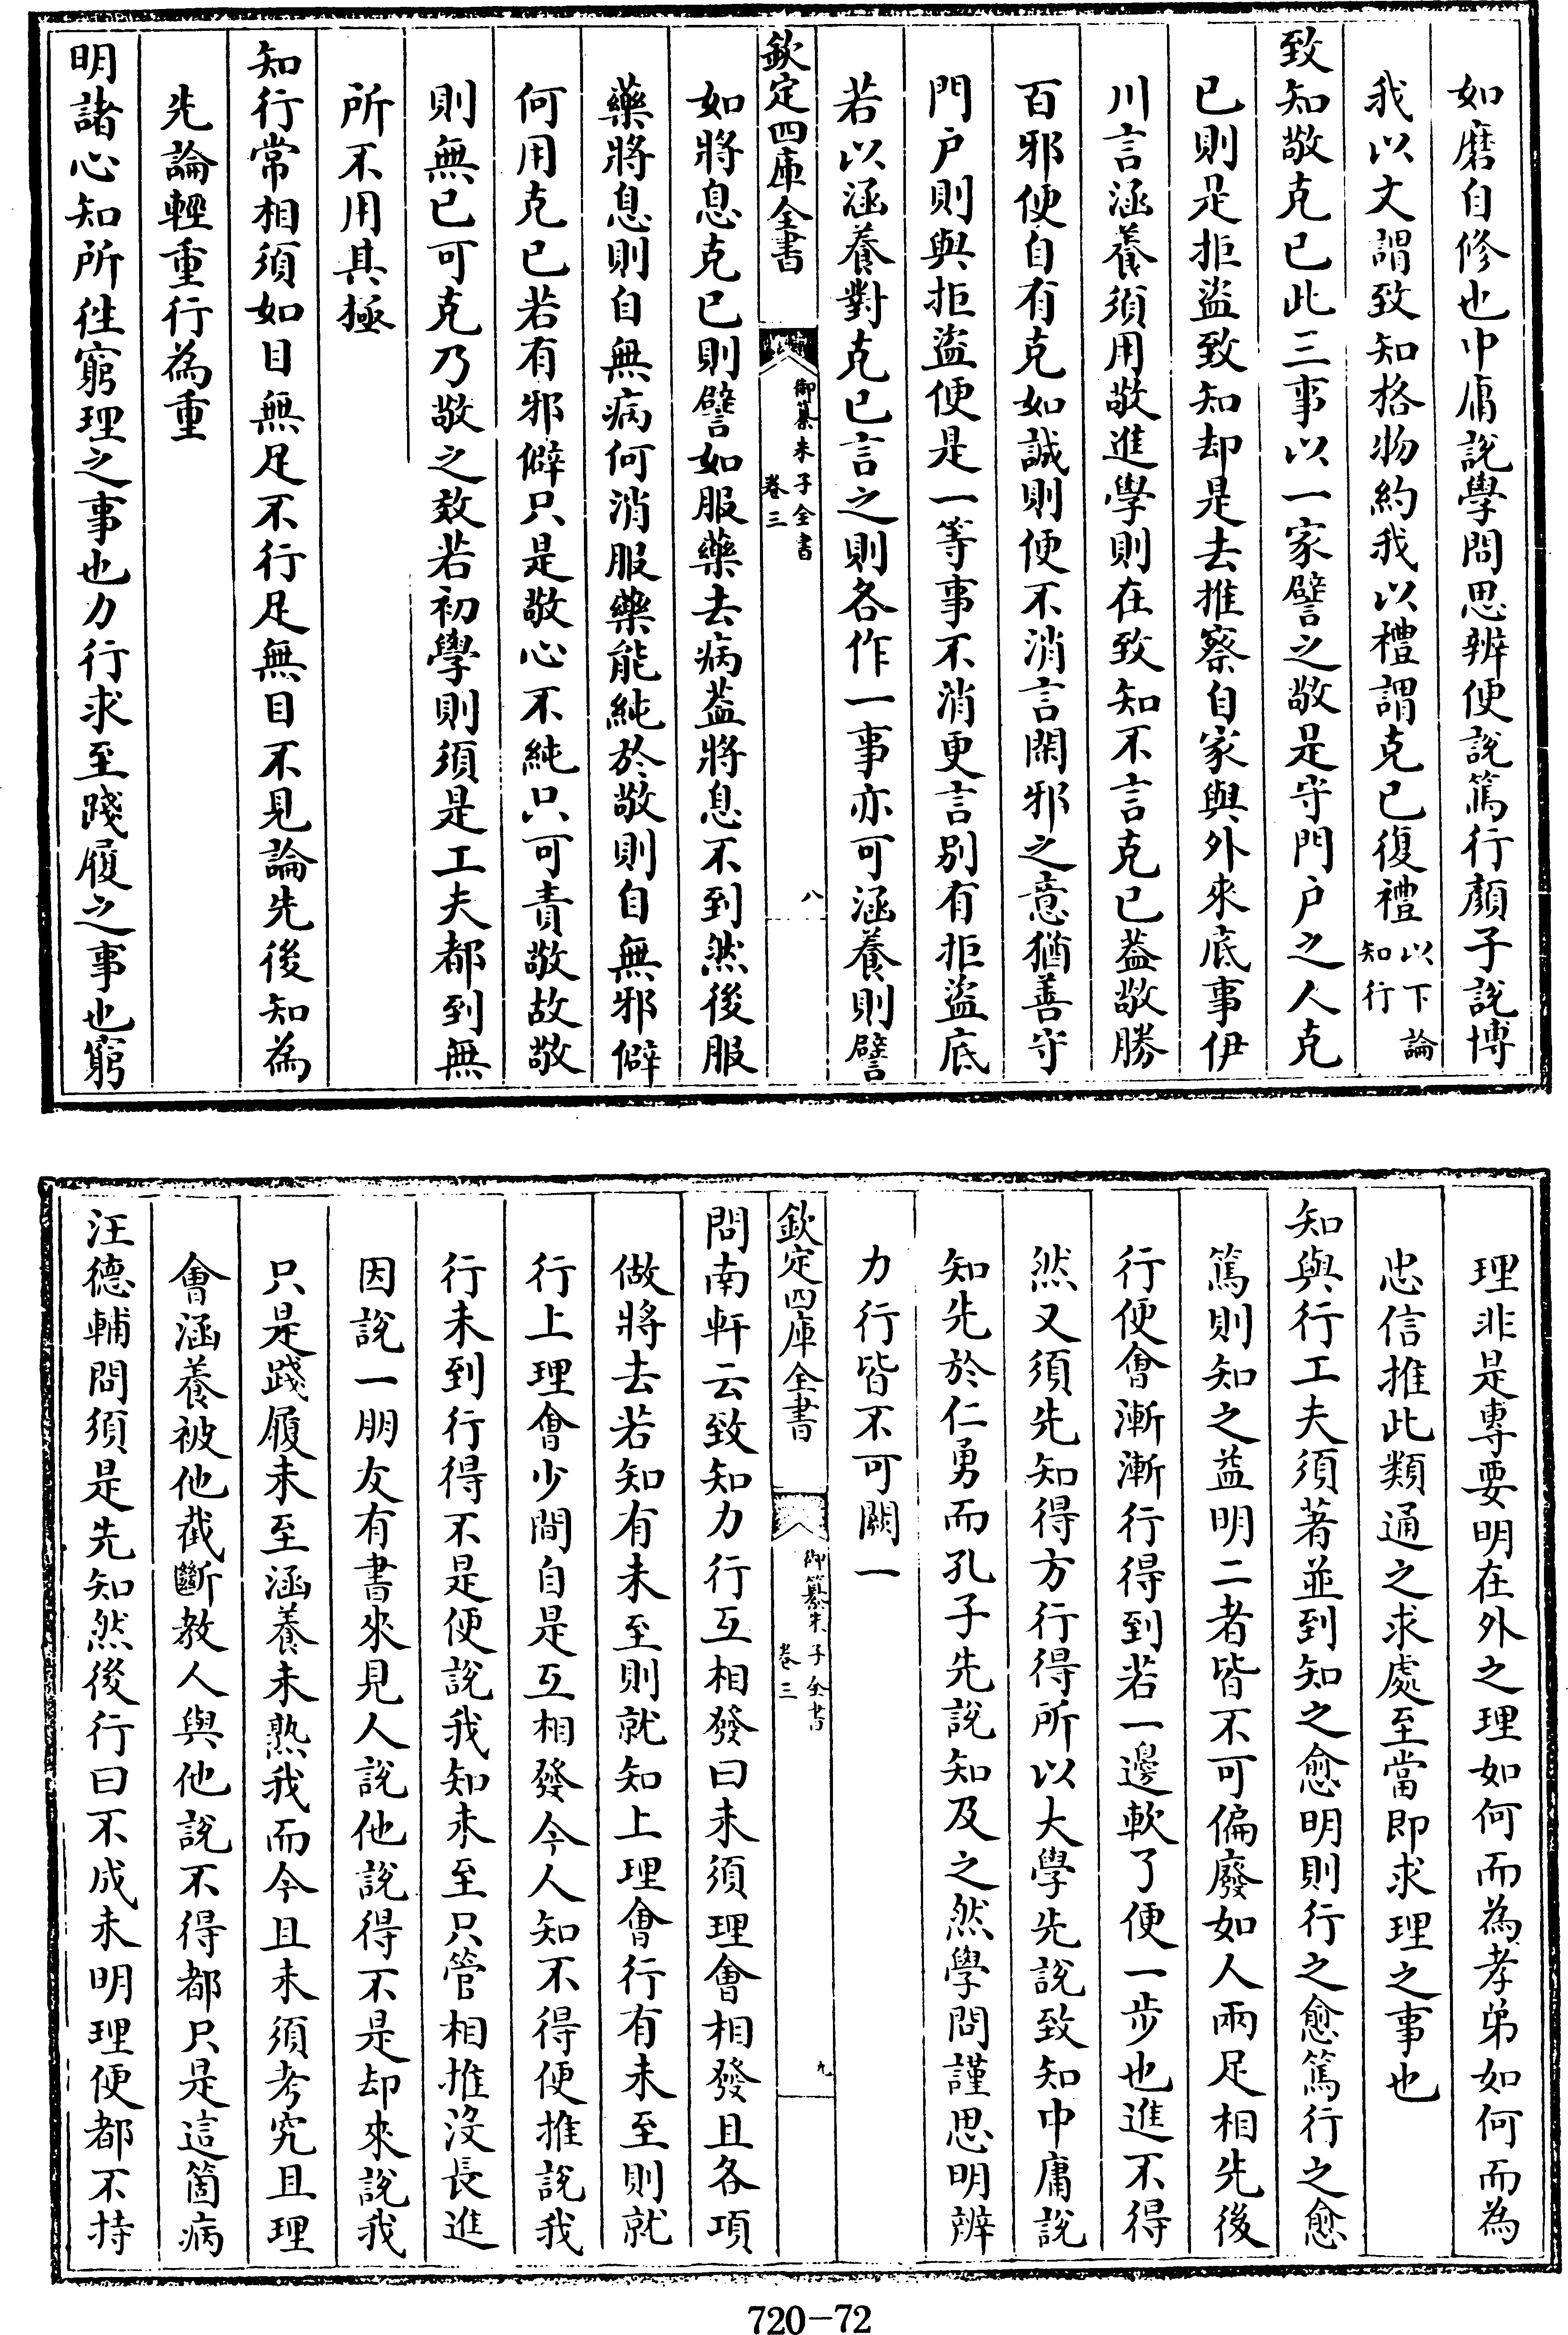 如磨自修也中庸說學問思辨便說篤行顏子說博
我以文謂致知格物約我以禮謂克己復禮以下論知行
致知敬克己此三事以一家譬之敬是守門户之人克
己則是拒盜致知却是去推察自家與外來底事伊
川言涵養須用敬進學則在致知不言克己葢敬勝
百邪便自有克如誠則便不消言閑邪之意猶善守
門户則與拒盜便是一等事不消更言别有拒盜底
若以涵養對克己言之則各作一事亦可涵養則譬
欽定四庫全書
御纂朱子全書
卷三
八
如將息克己則譬如服藥去病葢將息不到然後服
藥將息則自無病何消服藥能純於敬則自無邪僻
何用克己若有邪僻只是敬心不純只可責敬故敬
則無己可克乃敬之效若初學則須是工夫都到無
所不用其極
知行常相須如目無足不行足無目不見論先後知為
先論輕重行為重
明諸心知所往窮理之事也力行求至踐履之事也窮
理非是專要明在外之理如何而為孝弟如何而為
忠信推此類通之求處至當即求理之事也
知與行工夫須著並到知之愈明則行之愈篤行之愈
篤則知之益明二者皆不可偏廢如人兩足相先後
行便會漸漸行得到若一邊軟了便一步也進不得
然又須先知得方行得所以大學先說致知中庸說
知先於仁勇而孔子先說知及之然學問謹思明辨
力行皆不可闕一
欽定四庫全書
御纂朱子全書
卷三
九
問南軒云致知力行互相發曰未須理會相發且各項
做將去若知有未至則就知上理會行有未至則就
行上理會少間自是互相發今人知不得便推說我
行未到行得不是便說我知未至只管相推沒長進
因說一朋友有書來見人說他說得不是却來說我
只是踐履未至涵養未熟我而今且未須考究且理
會涵養被他截斷教人與他說不得都只是這箇病
汪德輔問須是先知然後行曰不成未明理便都不持
720-72